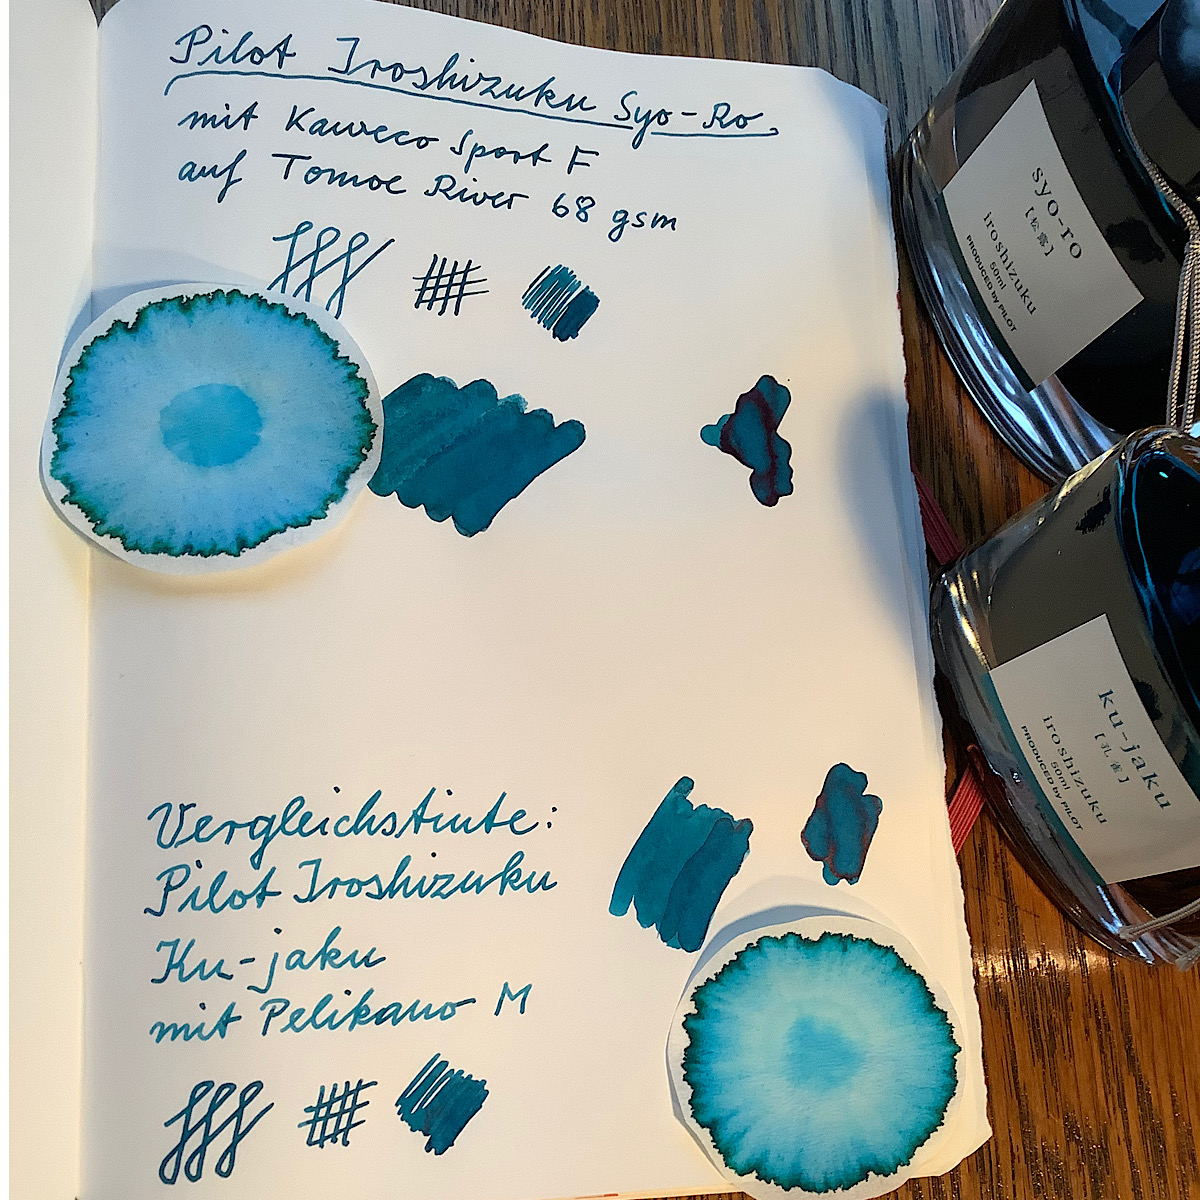 Pilot Iroshizuku Syo-Ro
mit Kaweco Sport F
auf Tomoe River 68 gsm
Vergleichstinte:
Pilot Iroshizuku
Ku-jaku
mit Pelikano M
syo-ro
[松露]
iroshizuku
50ml
PRODUCED by PILOT
ku-jaku
[孔雀]
iroshizuku
50ml
PRODUCED by PILOT